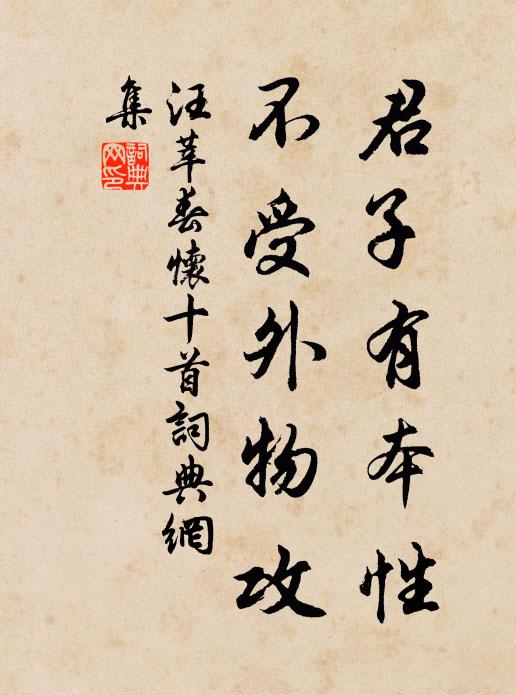 君子有本性
不受外物攻
汪莘春懷十首詞典網
集
詞典
网印